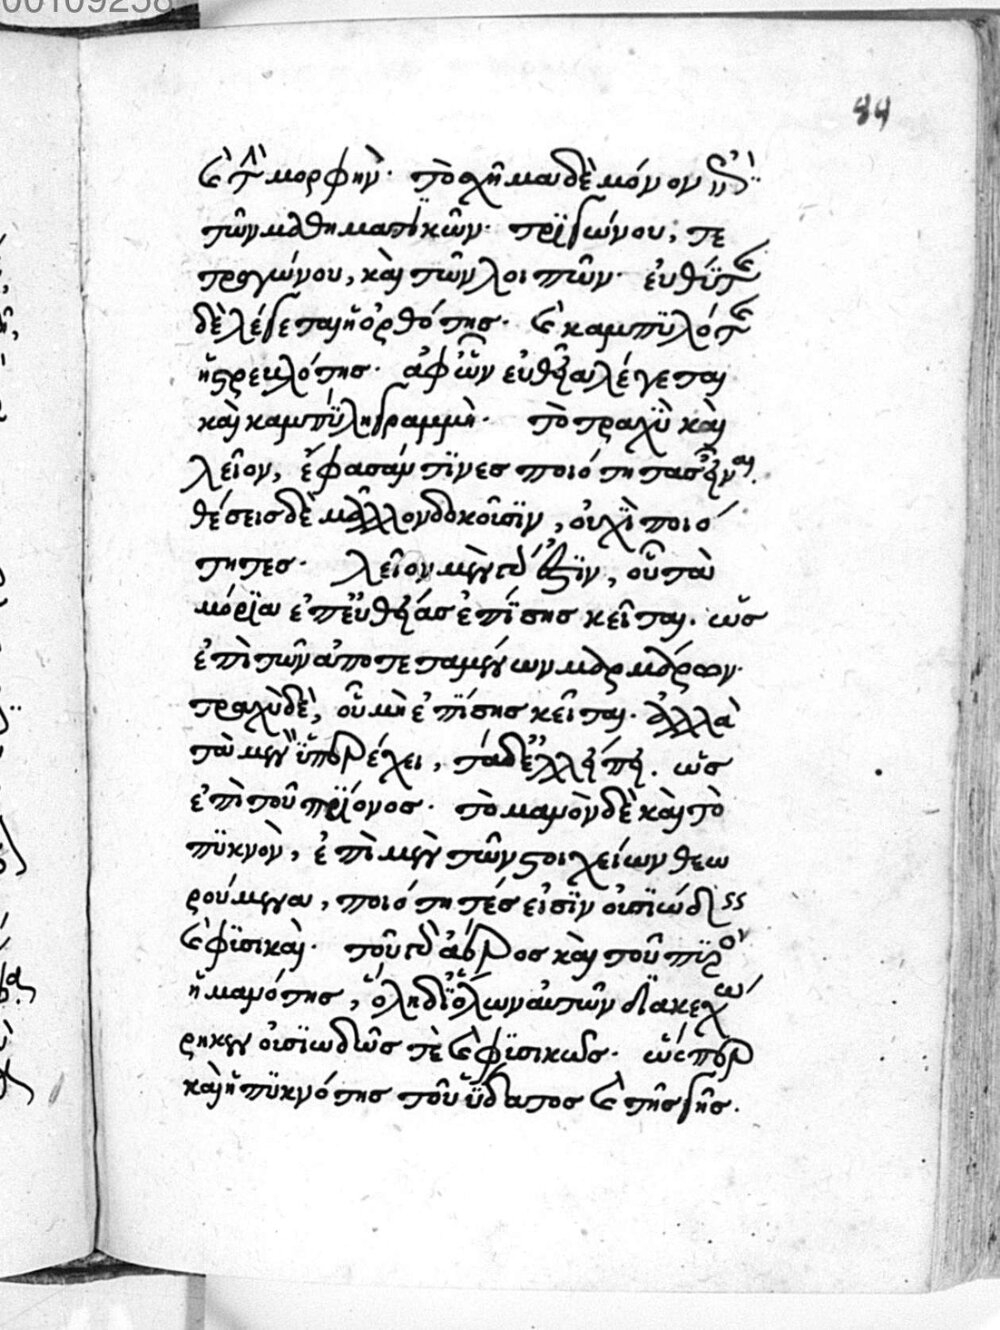 00109258
44
καὶ τὴν μορφήν· τὸ σχῆμα δὲ μόνον ἐπὶ
τῶν μαθηματικῶν· τριγώνου, τε
τραγώνου, καὶ τῶν λοιπῶν· εὐθύτης
δὲ λέγεται ἡ ὀρθότης· καὶ καμπυλότης
ἡ στρεβλότης· ἀφ' ὧν εὐθεῖα λέγεται
καὶ καμπύλη γραμμή· τὸ τραχὺ καὶ
λεῖον, ἔφασάν τινες ποιότητας εἶναι.
θέσεις δὲ μᾶλλον δοκοῦσιν, οὐχὶ ποιό
τητες· λεῖον μὲν γάρ ἐστιν, οὗ τὰ
μόρια ἐπ' εὐθείας ἐπίσης κεῖται. ὡς
ἐπὶ τῶν ἀποτεταμένων μαρμάρων·
τραχὺ δὲ, οὗ μὴ ἐπίσης κεῖται· ἀλλὰ
τὰ μὲν ὑπερέχει, τὰ δὲ ἐλλείπει. ὡς
ἐπὶ τοῦ πρίονος· τὸ μανὸν δὲ καὶ τὸ
πυκνὸν, ἐπὶ μὲν τῶν στοιχείων θεω
ρούμενα, ποιότητές εἰσιν οὐσιώδεις
καὶ φυσικαὶ· τοῦ γὰρ ἀέρος καὶ τοῦ πυρὸς
ἡ μανότης, ὅλη δι' ὅλων αὐτῶν διακεχώ
ρηκεν οὐσιωδῶς τὲ καὶ φυσικῶς· ὥσπερ
καὶ ἡ πυκνότης τοῦ ὕδατος καὶ τῆς γῆς.